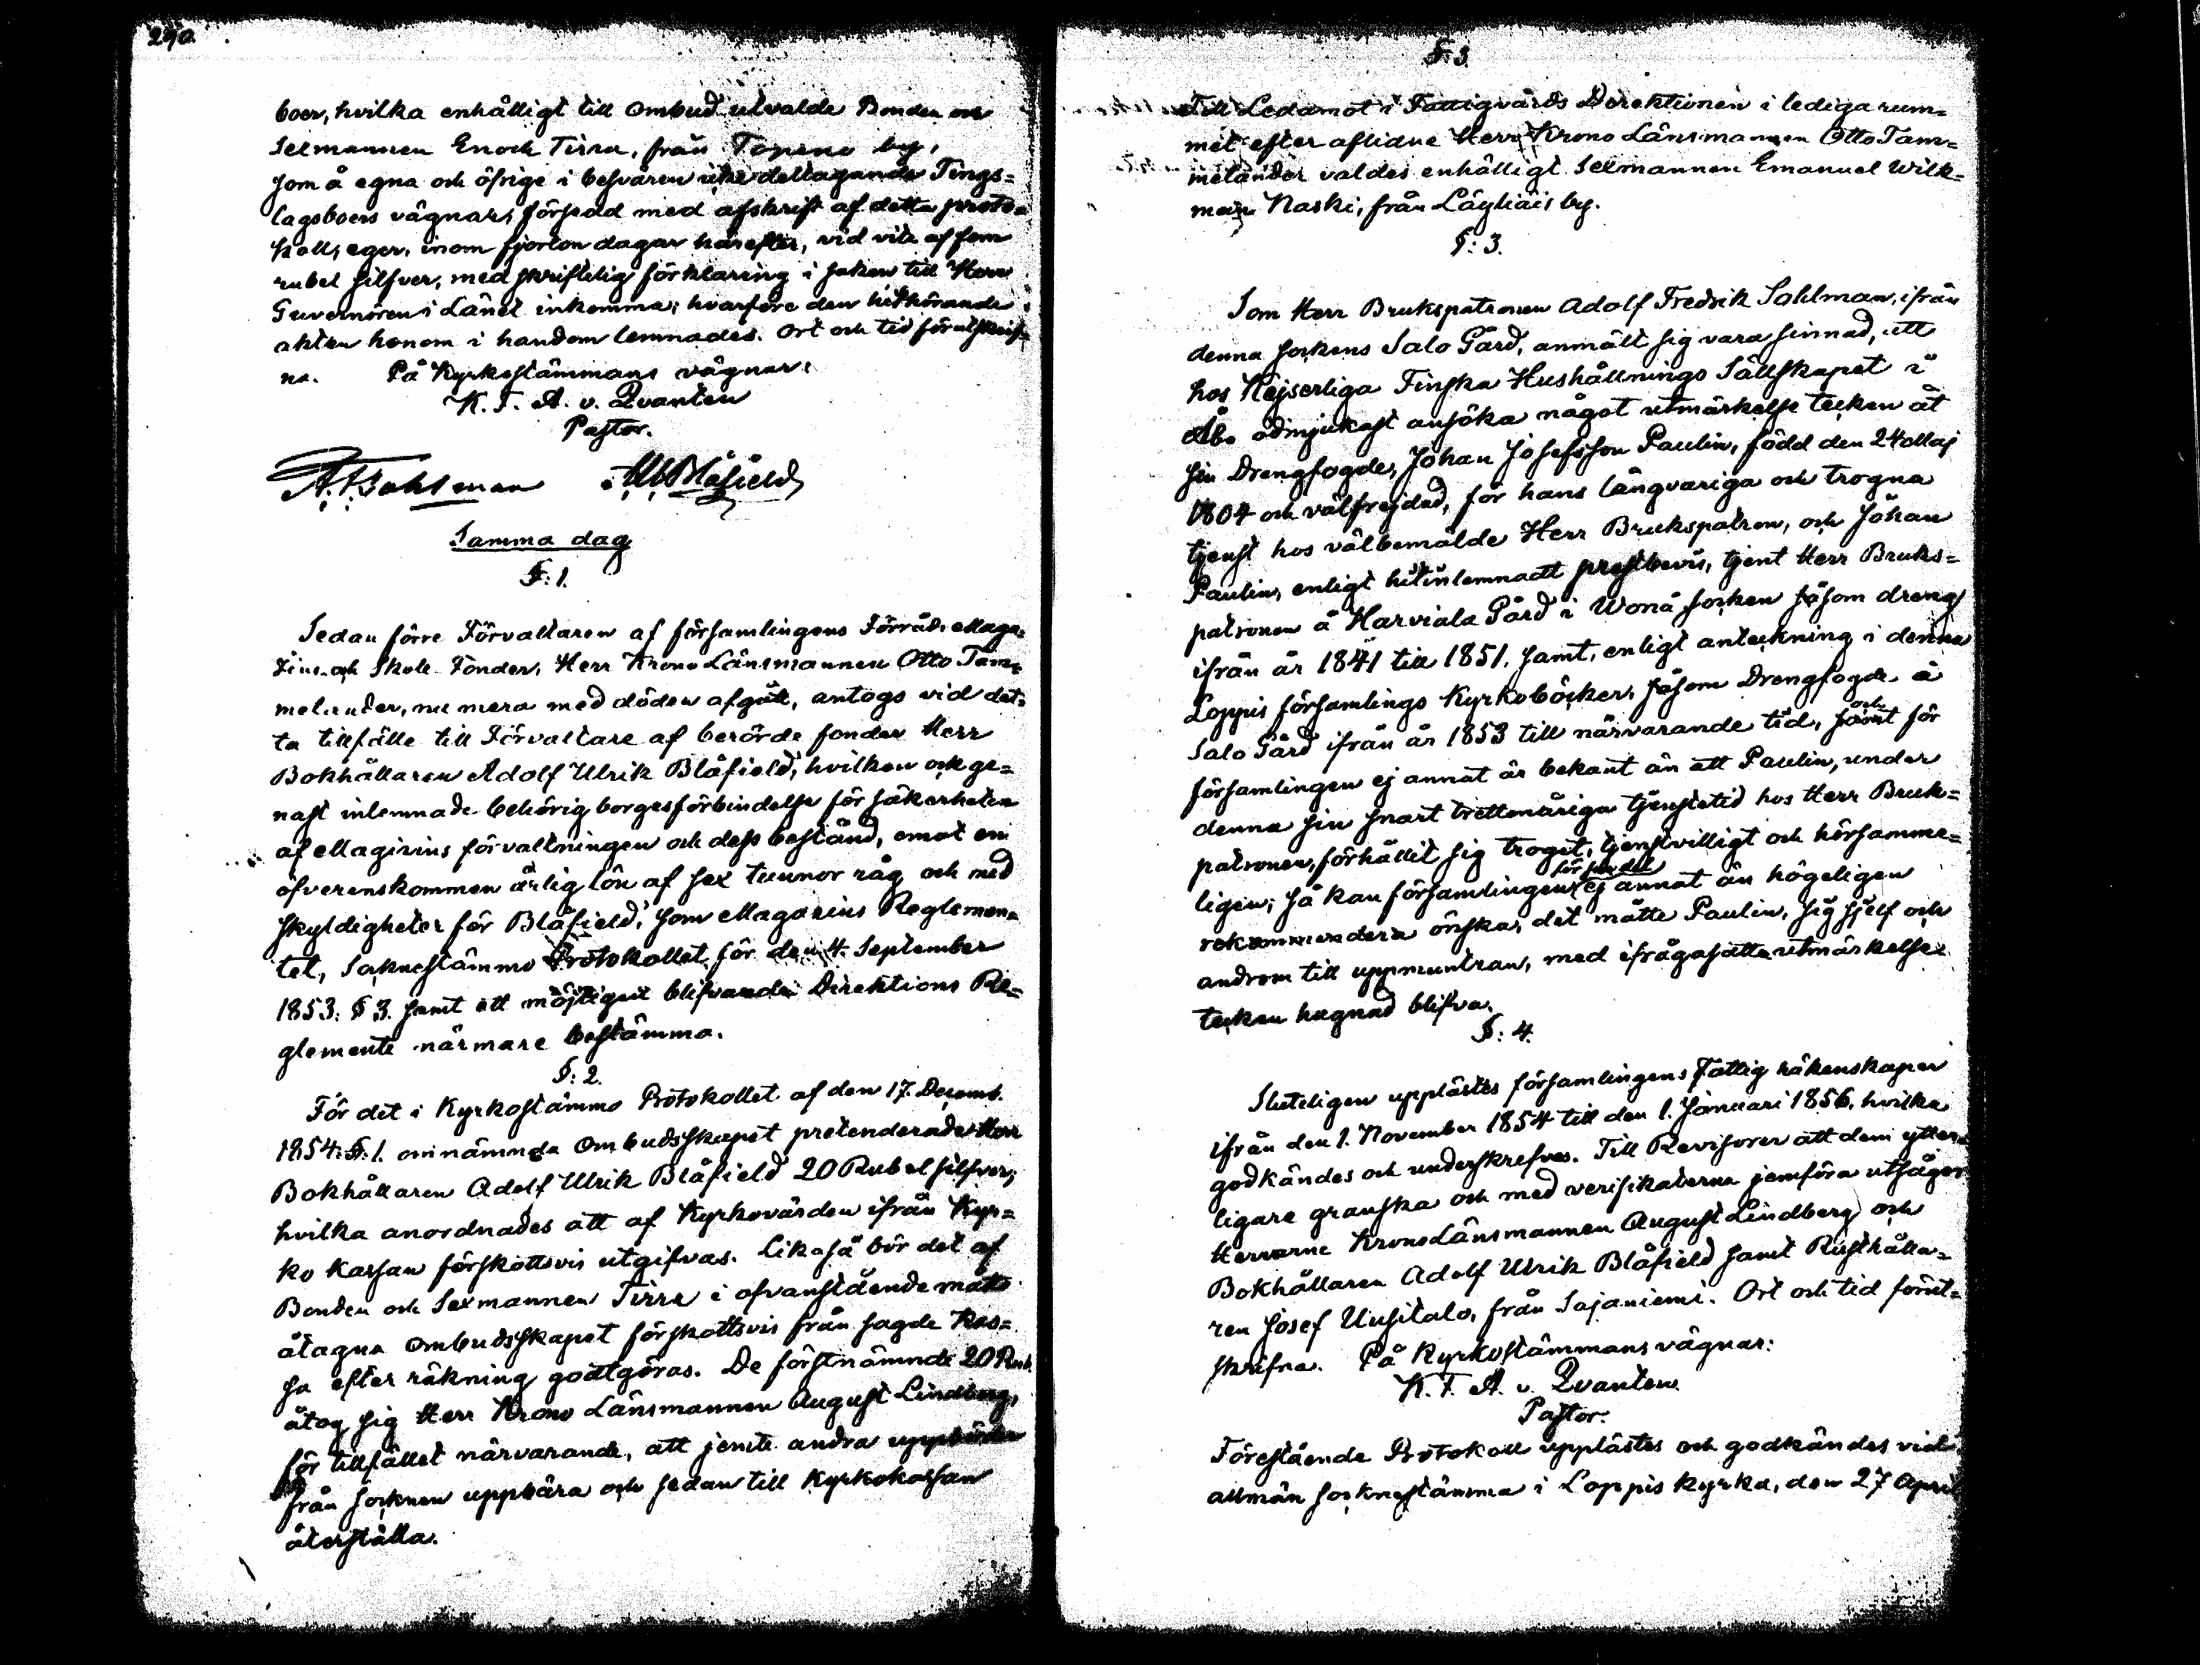 290.
boer, hvilka enhålligt till Ombud utvalde Bonden och
Sexmannen Enoch Tirra, från Topeno by,
som å egna och öfrige i besvären icke deltagande Tings=
lagsboers vägnar, försedd med afskrift af detta proto=
koll, eger, inom fjorton dagar härefter, vid vite af fem
rubel silfver, med skriftelig förklaring i saken till Herr
Guvernören i Länet inkomma; hvarföre den hithörande
akten honom i handom lemnades. Ort och tid förutskrif=
na. På Kyrkostämmans vägnar:
K. F. A. v. Qvanten
Pastor.
A. F. Sahlman AUBlåfield
Samma dag
§: 1.
Sedan förre Förvaltaren af församlingens Förråds Maga=
zins och Skole Fonder, Herr Krono Länsmannen Otto Tam=
melander, nu mera med döden afgått, antogs vid det=
ta tillfälle till Förvaltare af berörde fonder Herr
Bokhållaren Adolf Ulrik Blåfield, hvilken ock ge=
nast inlemnade behörig borgesförbindelse för säkerheten
af Magazins förvaltningen och dess bestånd, emot en
öfverenskommen årlig lön af sex tunnor råg och med
skyldigheter för Blåfield, som Magazins Reglemen=
tet, Sokne­stämmo Protokollet för den 4. September
1853. § 3. samt ett möjligen blifvande Direktions Re=
glemente närmare bestämma.
§: 2.
För det i Kyrkostämmo Protokollet af den 17. Decemb.
1854. §. 1. omnämnda Ombudsskapet pretenderade Herr
Bokhållaren Adolf Ulrik Blåfield 20 Rubel silfver,
hvilka anordnades att af Kyrkovärden ifrån Kyr=
ko Kassan förskottsvis utgifvas. Likaså bör det af
Bonden och Sexmannen Tirra i ofvanstående måtto
åtagna Ombudsskapet förskottsvis från sagde Kas=
sa efter räkning godtgöras. De förstnämnde 20 Rub.
åtog sig Herr Krono Länsmannen August Lindberg,
för tillfället närvarande, att jemte andra uppbörder
från socknen uppbära och sedan till Kyrkokassan
återställa.
§: 3.
Till Ledamot i Fattigvårds Direktionen i lediga rum=
met efter aflidne Herr Krono Länsmannen Otto Tam=
melander valdes enhålligt Sexmannen Emanuel Wilk=
man Naski, från Läyliäis by.
§: 3.
Som Herr Brukspatronen Adolf Fredrik Sahlman, ifrån
denna sockens Salo Gård, anmält sig vara sinnad, att
hos Kejserliga Finska Hushållnings Sällskapet i
Åbo ödmjukast ansöka något utmärkelse tecken åt
sin Drengfogde, Johan Josefsson Paulin, född den 24 Maj
1804 och välfrejdad, för hans långvariga och trogna
tjenst hos välbemälde Herr Brukspatron, och Johan
Paulin, enligt hitinlemnadt prestbevis, tjent Herr Bruks=
patronen å Harviala Gård i Wonå socken såsom dreng
ifrån år 1841 till 1851. samt, enligt anteckning i denna
Loppis församlings Kyrkoböcker, såsom Drengfogde å
Salo Gård ifrån år 1853 till närvarande tid, samt och för
församlingen ej annat är bekant än att Paulin, under
denna sin snart trettonåriga tjenstetid hos Herr Bruks=
patronen, förhållit sig troget, tjenstvilligt och hörsamme=
ligen; så kan församlingen för sin del ej annat än högeligen
rekommendera önska, det måtte Paulin, sig sjelf och
androm till uppmuntran, med ifrågasatta utmärkelse
tecken hugnad blifva.
§: 4.
Sluteligen upplästes församlingens Fattig räkenskaper
ifrån den 1. November 1854 till den 1. Januari 1856. hvilka
godkändes och underskrefvos. Till Revisorer att dem ytter=
ligare granska och med verifikaterna jemföra utsågos
Herrarne Krono Länsmannen August Lindberg och
Bokhållaren Adolf Ulrik Blåfield samt Rusthålla=
ren Josef Uusitalo, från Sajaniemi. Ort och tid förut=
skrifna. På Kyrkostämmans vägnar:
K. F. A. v. Qvanten
Pastor.
Förestående Protokoll upplästes och godkändes vid
allmän sockne­stämma i Loppis kyrka, den 27 April